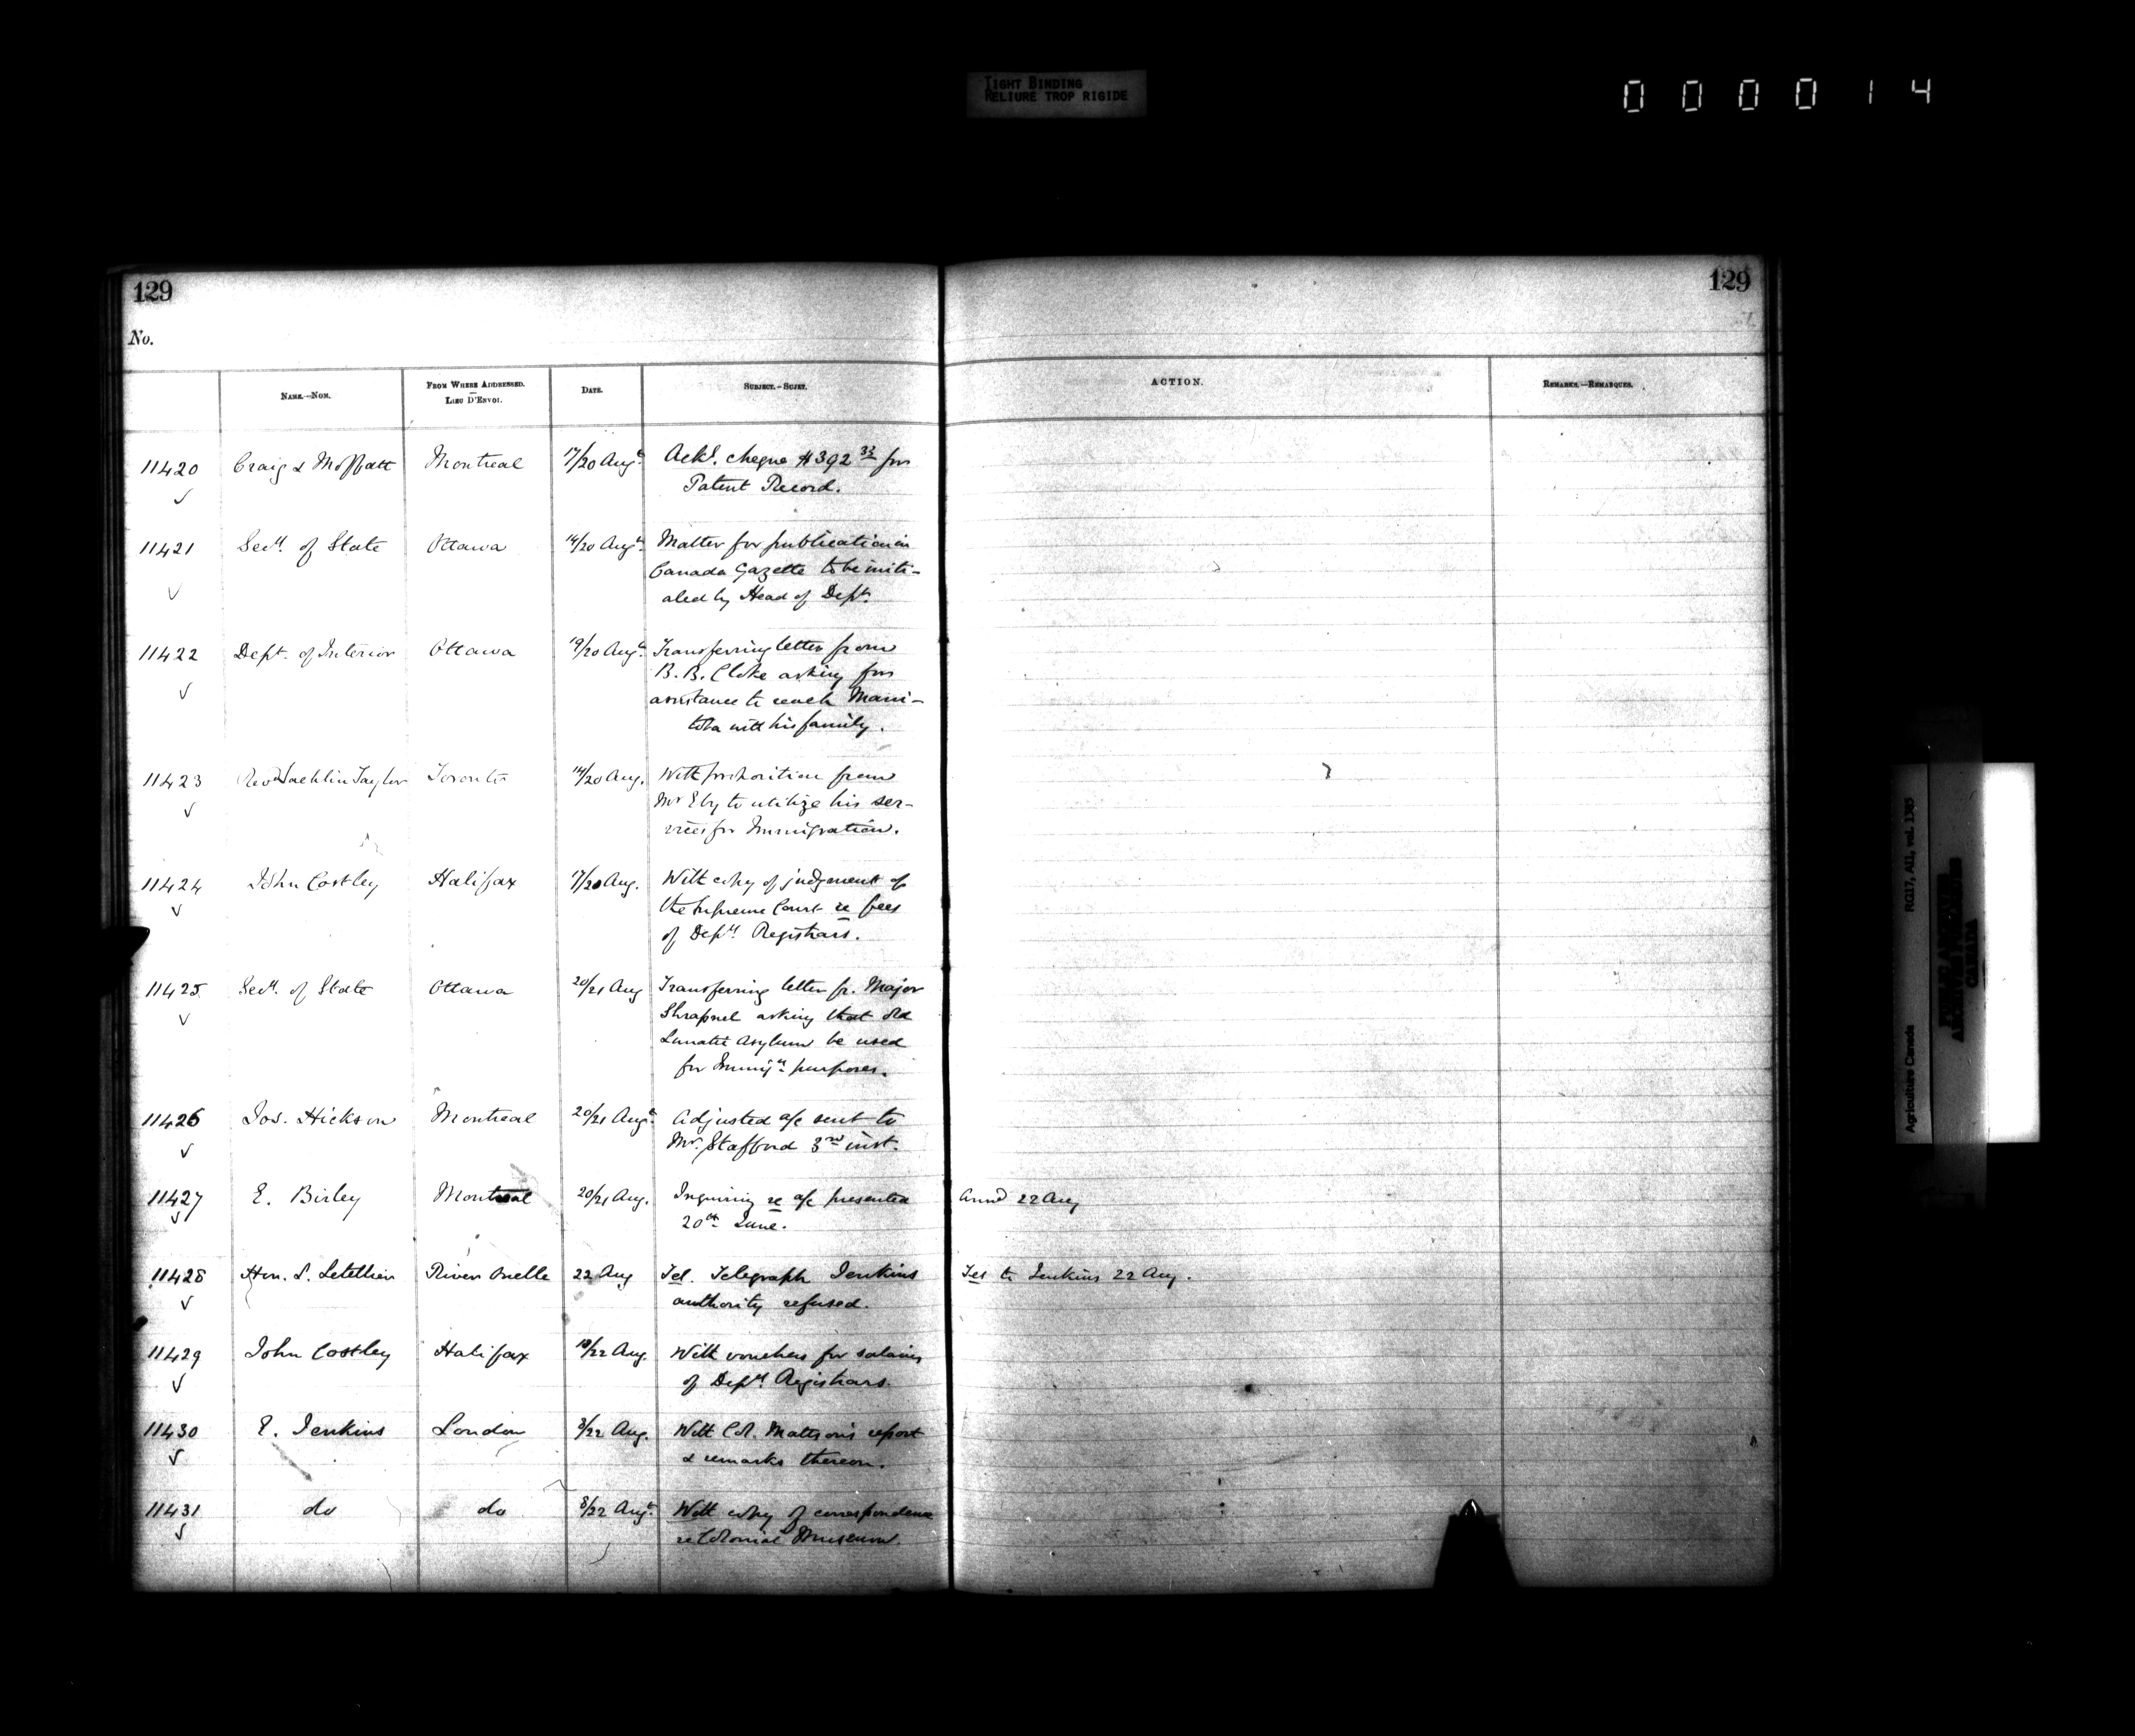 TIGHT BINDING
RELIURE TROP RIGIDE
0 0 0 0 1 4
129
129
No.
NAME.—NOM.
FROM WHERE ADDRESSED.
LIEU D'ENVOI.
DATE.
SUBJECT.—SUJET.
ACTION.
REMARKS.—REMARQUES.
11420 Craig & Moffatt Montreal 17/20 Augt. Ackg. cheque $392 33 for
Patent Record.
11421 Secy. of State Ottawa 14/20 Augt. Matter for publication in
Canada Gazette to be initi-
aled by Head of Dept.
11422 Dept. of Interior Ottawa 19/20 Augt. Transferring letter from
B. B. Cloke asking for
assistance to reach Mani-
toba with his family.
11423 Revd Lachlin Taylor Toronto 14/20 Aug. With proposition from
Mr Eby to utilize his ser-
vices for Immigration.
11424 John Costley Halifax 17/20 Aug. With copy of judgment of
the Supreme Court re fees
of Depy. Registrars.
11425 Secy. of State Ottawa 20/21 Aug Transferring letter fr. Major
Shrapnel asking that old
Lunatic Asylum be used
for Immign. purposes.
11426 Jos. Hickson Montreal 20/21 Augt. Adjusted a/c sent to
Mr. Stafford 3rd inst.
11427 E. Birley Montreal 20/21 Aug. Inquiring re a/c presented Answd 22 Aug
20th June.
11428 Hon. L. Letellier River Ouelle 22 Aug Tel. Telegraph Jenkins Tel to Jenkins 22 Aug.
authority refused.
11429 John Costley Halifax 18/22 Aug. With vouchers for salaries
of Depy. Registrars.
11430 E. Jenkins London 8/22 Aug. With Col. Mattson's report
& remarks thereon.
11431 do do 8/22 Augt. With copy of correspondence
re Colonial Museum.
Agriculture Canada RG17, AII, vol. 1385
PUBLIC ARCHIVES
ARCHIVES PUBLIQUES
CANADA